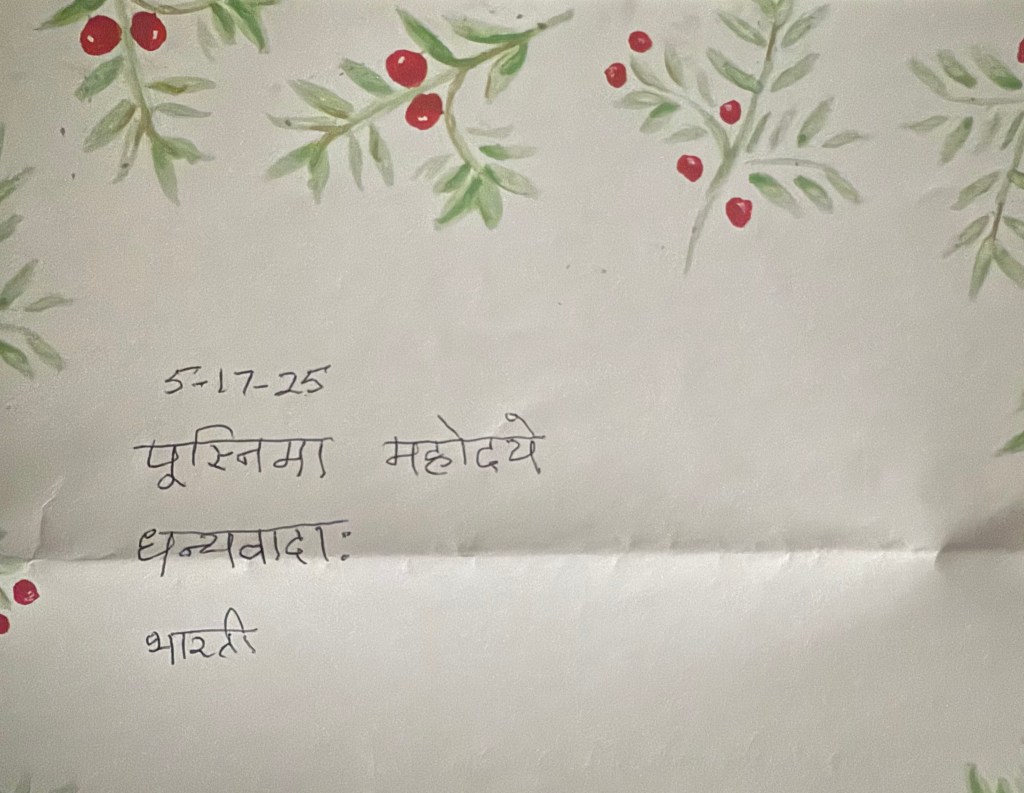 5-17-25
पूर्स्निमा महोदये
धन्यवादाः
भारती